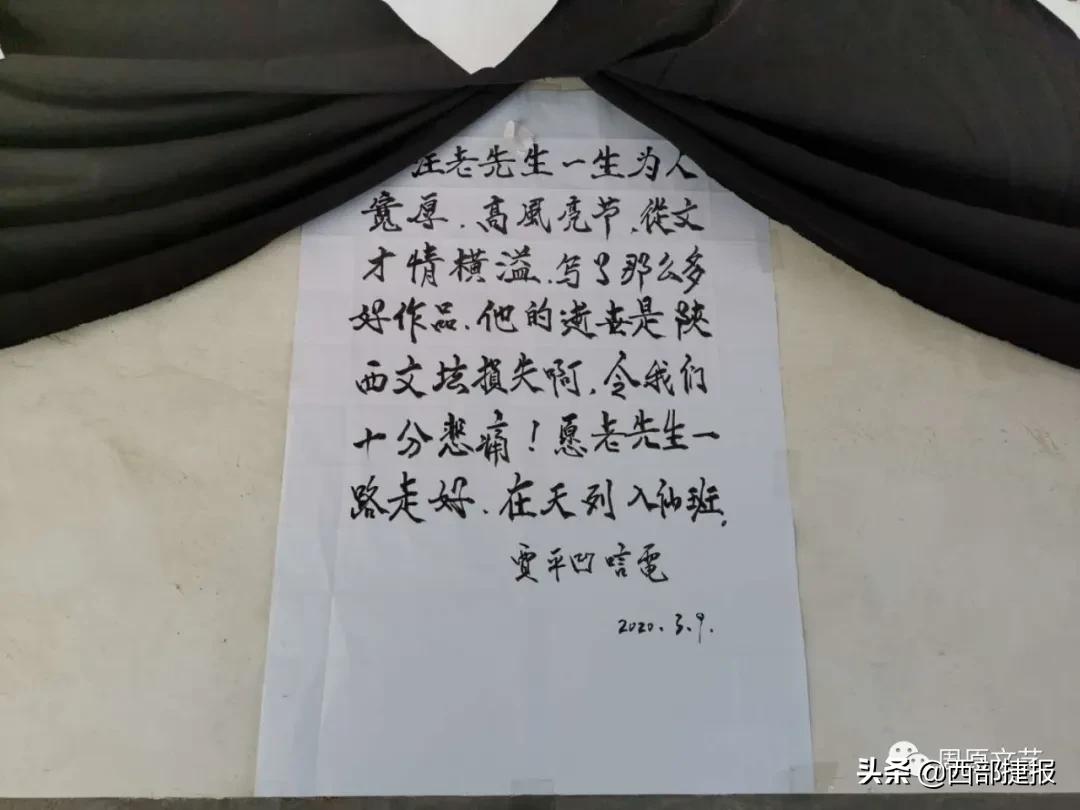 汪老先生一生为人
寬厚.高風亮节、從文
才情横溢.写了那么多
好作品.他的逝世是陝
西文坛損失啊.令我们
十分悲痛！愿老先生一
路走好.在天列入仙班.
賈平凹唁電
2020.3.9.
周原文艺
头条@西部捷报